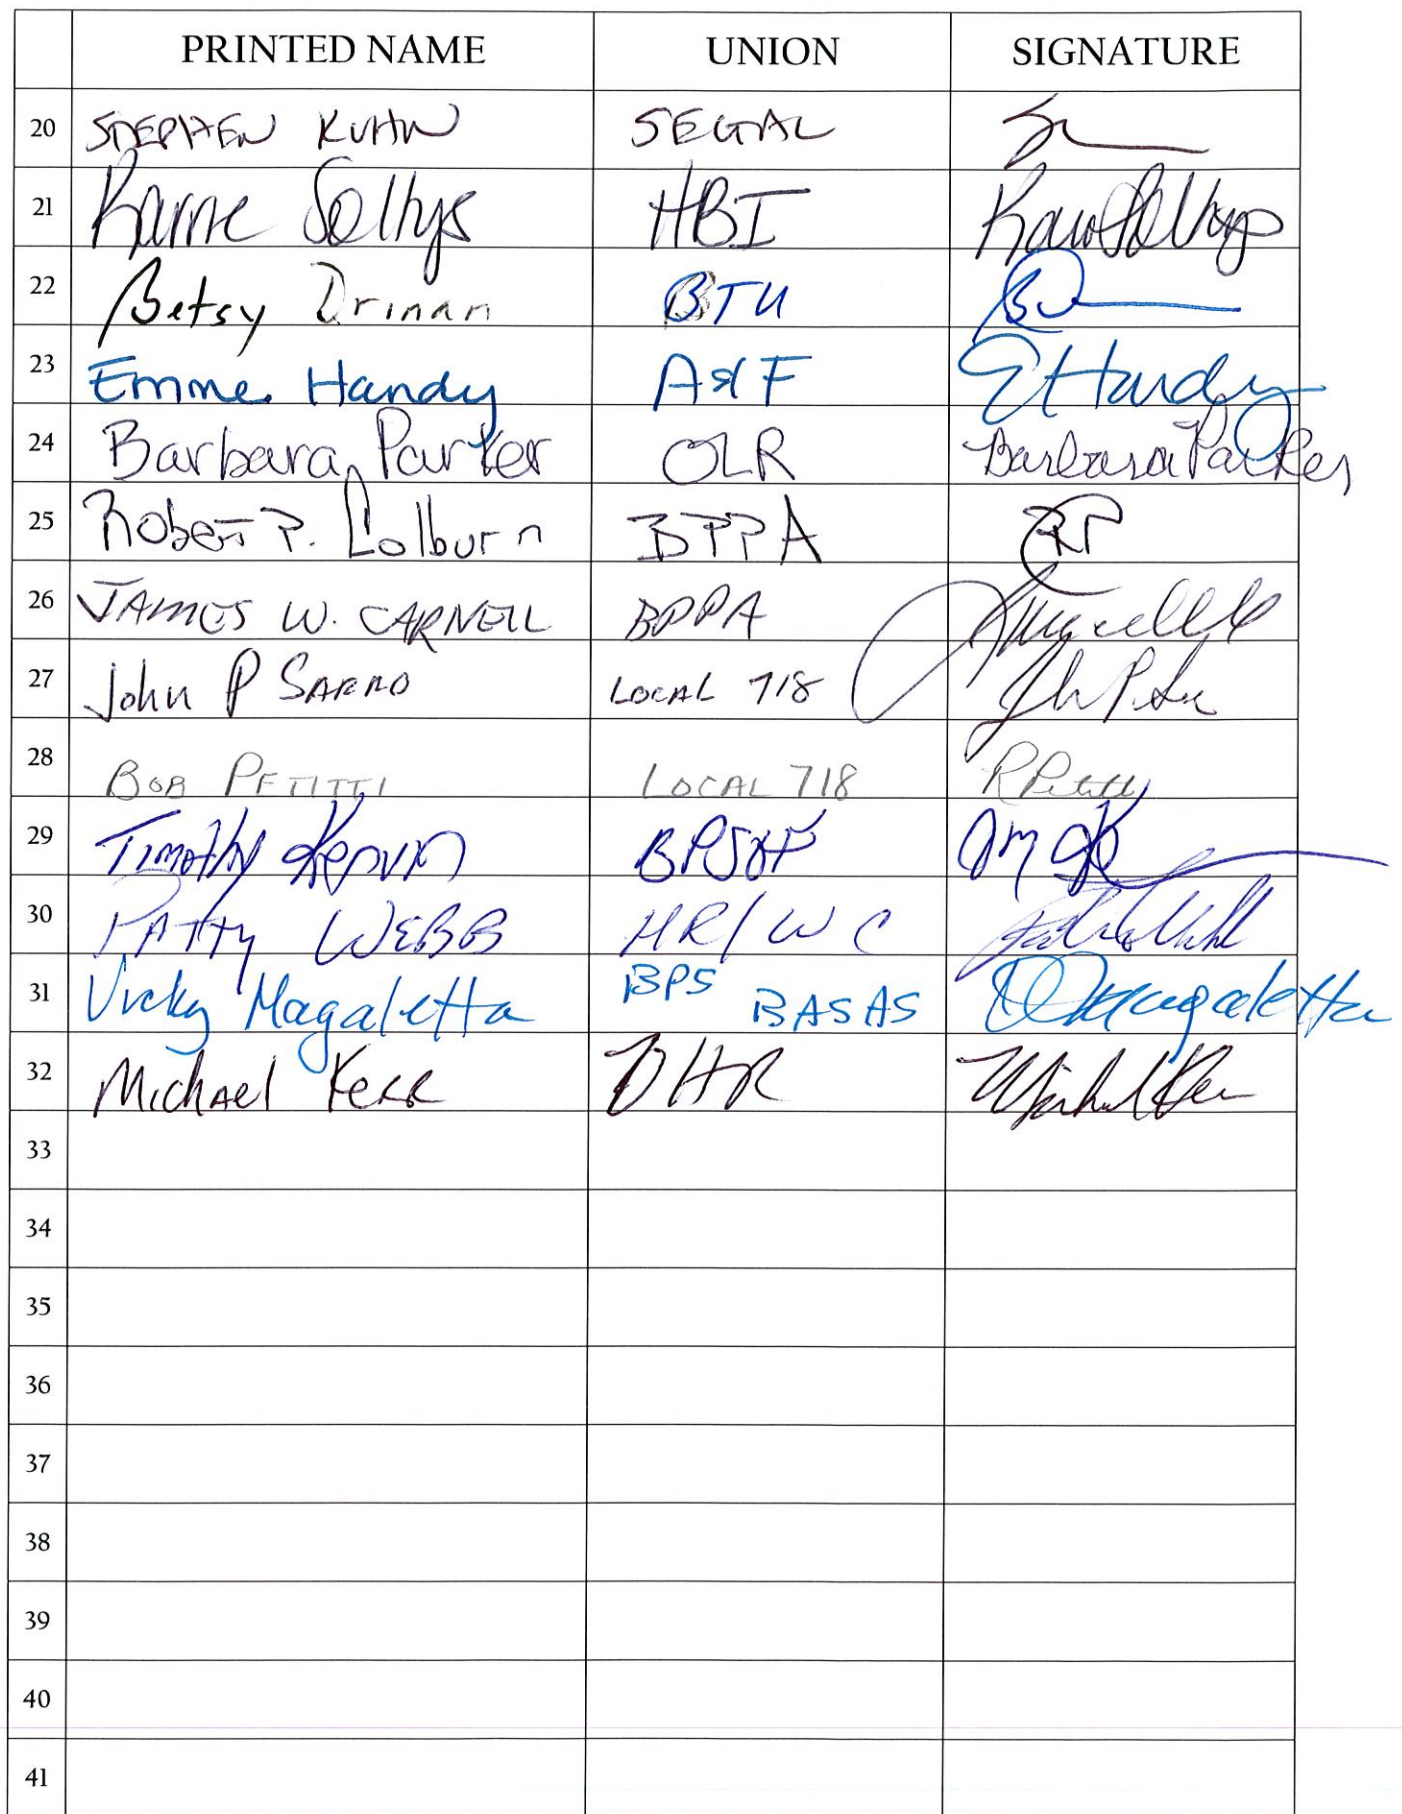 PRINTED NAME UNION SIGNATURE
20 STEPHEN KUHN SEGAL
21 Karrie Soltys HBI
22 Betsy Drinan BTU
23 Emme Handy A&F E Handy
24 Barbara Parker OLR Barbara Parker
25 Robert P. Colburn BPPA RP
26 JAMES W. CARNELL BPPA
27 John P SARRO LOCAL 718
28 BOB PETITTI LOCAL 718
29 Timothy BPSOF
30 PATTY WEBB HR/WC
31 Vicky Magaletta BPS BASAS Magaletta
32 Michael Kerr OHR Michael Kerr
33
34
35
36
37
38
39
40
41